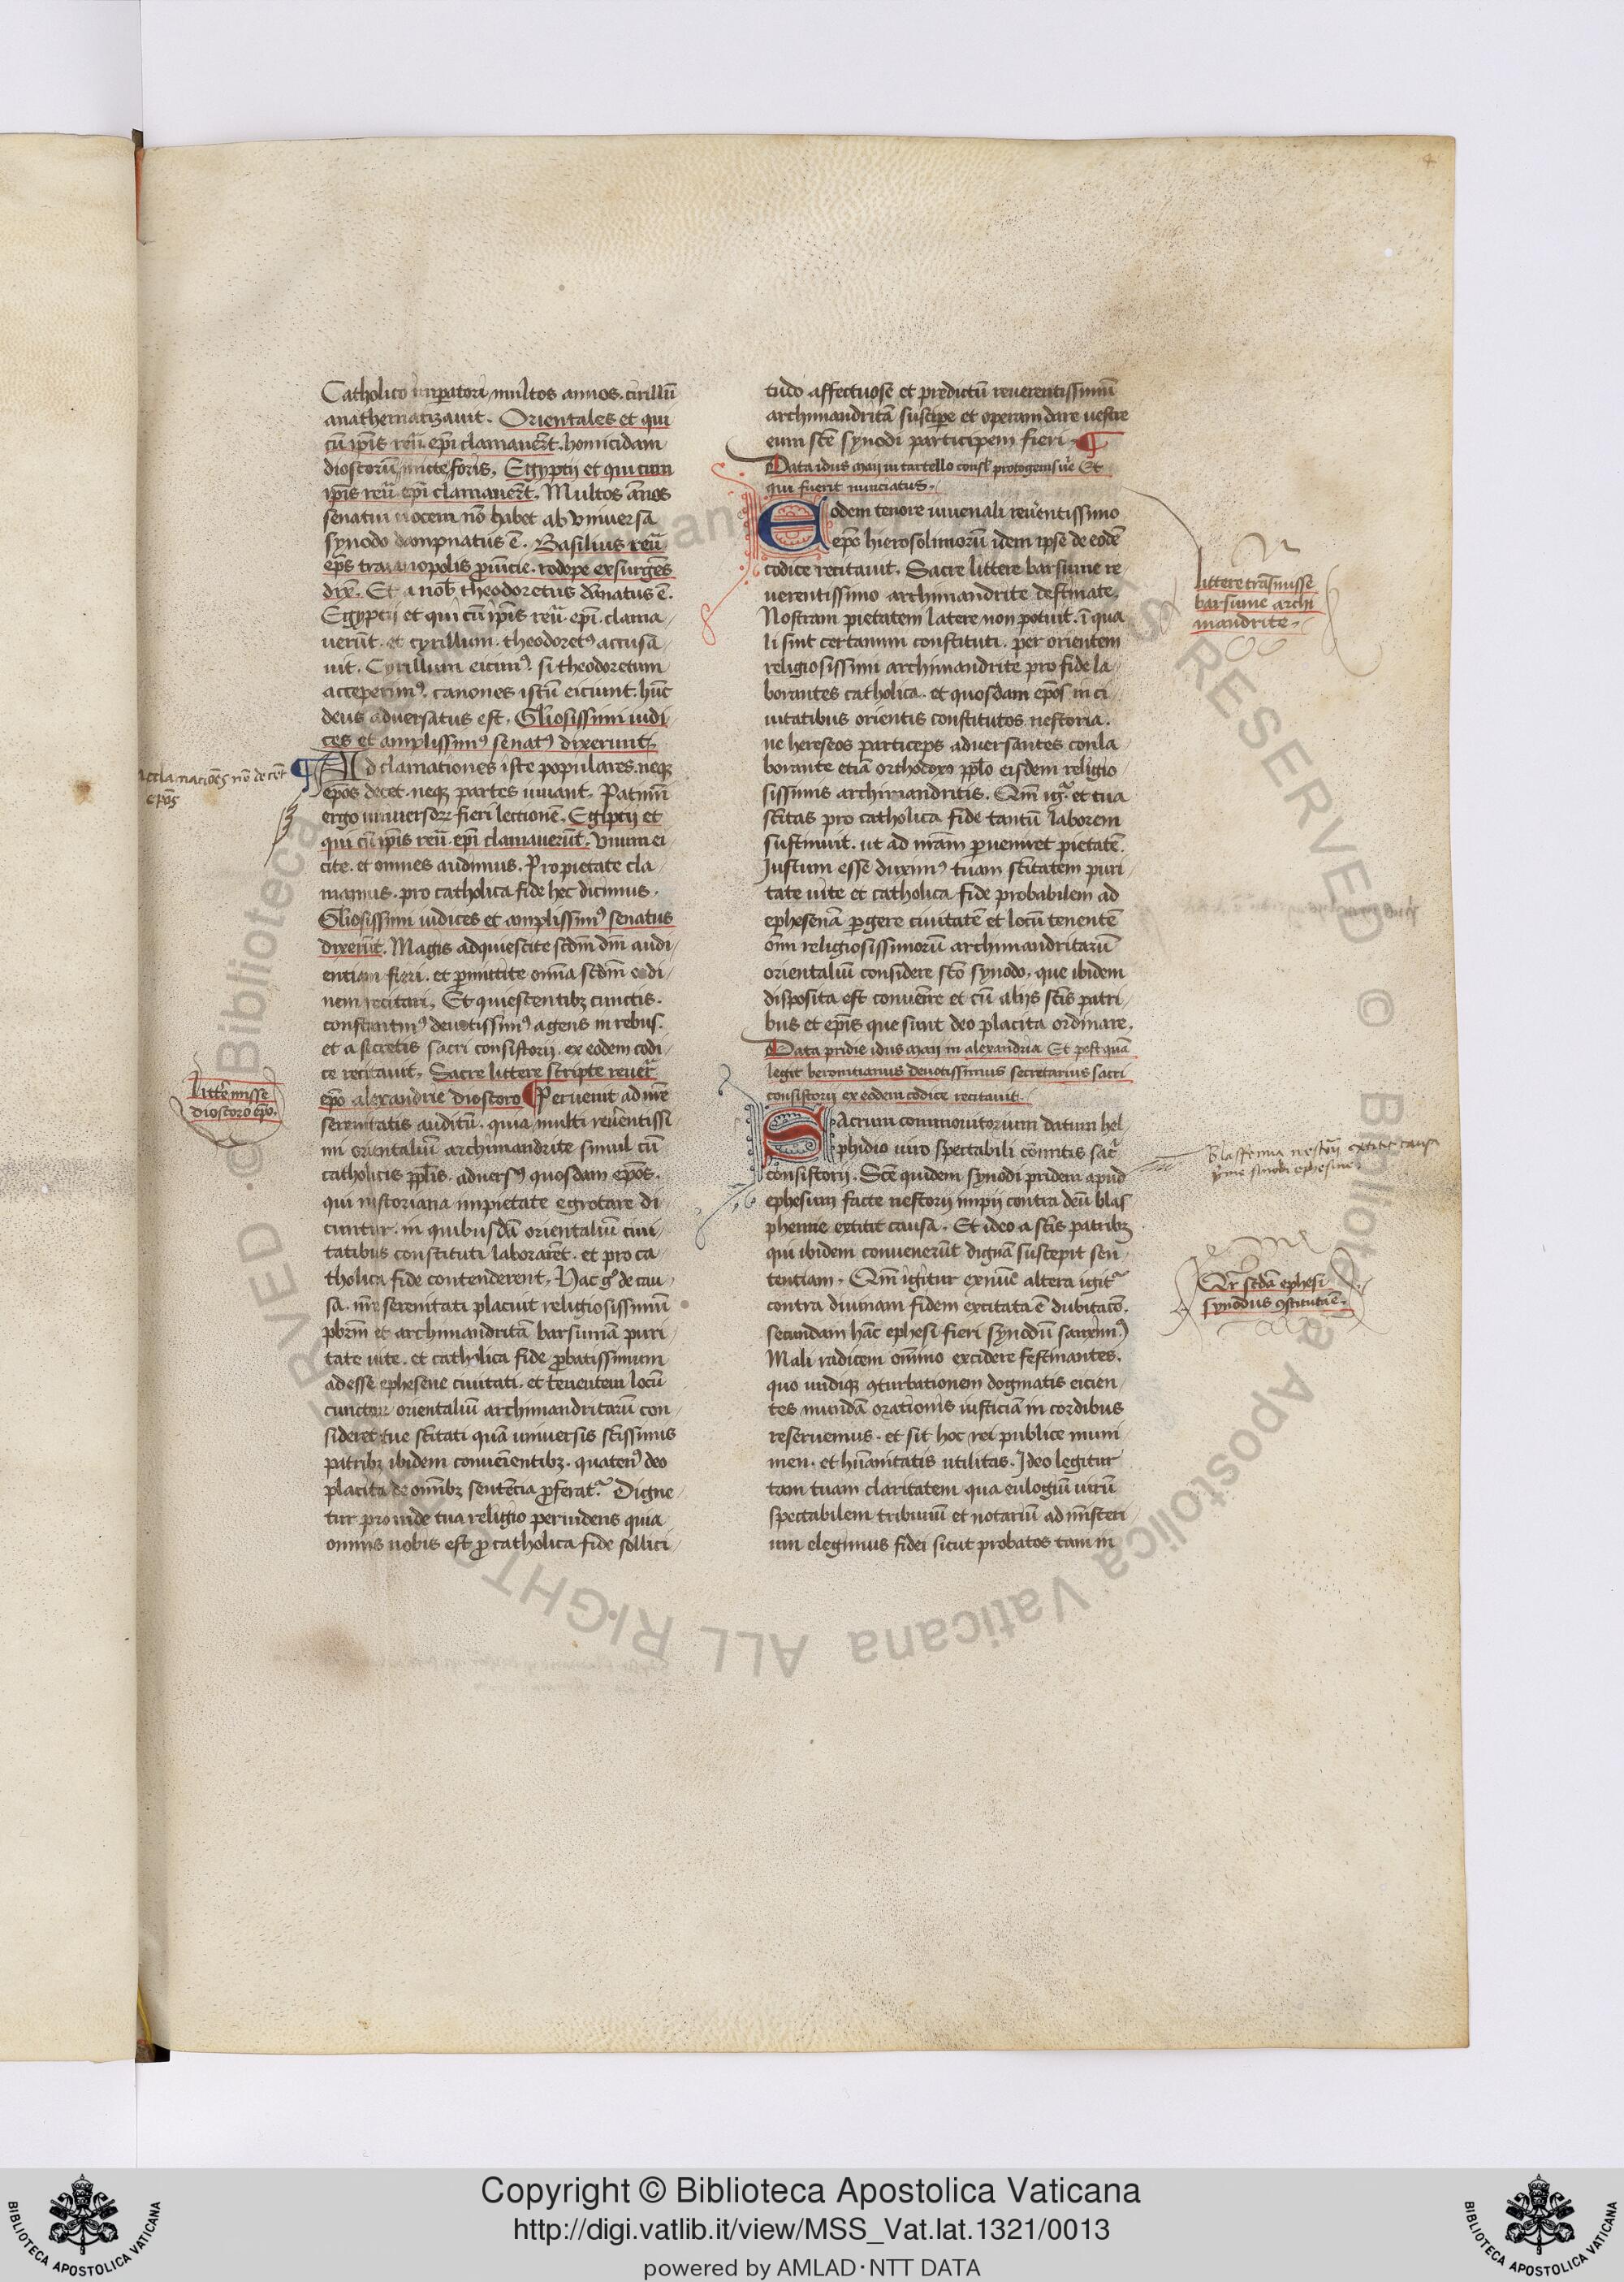 4
Catholico imperatori multos annos. cirillū
anathematizauit. Orientales et qui
cū ip̄is reū. ep̄i clamauer̄t. homicidam
dioscorū mitte foris. Egyptij et qui cum
ip̄is reū. ep̄i clamauer̄t. Multos ān̄os
senatui uocem nō habet ab vniuersa
synodo dampnatus ē. Basilius reū
ep̄s traianopolis ꝓuīcie. rodope exsurgēs
dix̄. Et a nob̄ theodoretus dānatus ē.
Egyptij et qui cū ip̄is reū. ep̄i. clama
uerūt. et cyrillum. theodoretꝰ accusa
uit. Cyrillum eicimꝰ. si theodoretum
acceperimꝰ. canones istū eiciunt. hūc
deus aduersatus est. Gl̄iosissimi iudi
ces et amplissimꝰ senatꝰ dixerunt.
Acclamatiōes nō decēt
ep̄os
Adclamationes iste populares. neqꝫ
ep̄os decet. neqꝫ partes iuuant. Patimī
ergo vniuersoꝝ fieri lectionē. Egiptij et
qui cū ip̄is reū. ep̄i clamauerūt. vnum ei
cite. et omnes audimus. Pro pietate cla
mamus. pro catholica fide hec dicimus.
Gl̄iosissimi iudices et amplissimꝰ senatus
dixerūt. Magis adquiescite scd̄m dm̄ audi
entiam fieri. et ꝑmittite om̄ia scd̄m ordi
nem recitari. Et quiescentibꝫ cunctis.
constantinꝰ deuotissimꝰ agens in rebus.
et a secretis sacri consistorij. ex eodem codi
ce recitauit. Sacre littere scripte reuer̄
Litte᷑ misse
dioscoro ep̄o.
ep̄o alexandrie dioscoro ¶ Peruenit ad nr̄e
serenitatis auditū. quia multi reuerentissi
mi orientaliū archimandrite simul cū
catholicis pp̄lis. aduersꝰ quosdam ep̄os.
qui nistoriana impietate egrotare di
cuntur. in quibusdā orientaliū ciui
tatibus constituti laborarēt. et pro ca
tholica fide contenderent. Hac gͦ de cau
sa. nr̄e serenitati placuit religiosissimū
pb̄rm̄ et archimandritā barsumā puri
tate uite. et catholica fide ꝓbatissimum
adesse ephesene ciuitati. et tenentem locū
cunctoꝝ orientaliū archimandritarū con
sideret tue sc̄itati quā vniuersis sc̄issimis
patribꝫ ibidem conueīentibꝫ. quatenꝰ deo
placita de om̄ibꝫ sentētia ꝓferat᷑. Digne
tur proinde tua religio peruidens quia
omnis nobis est ꝓ catholica fide sollici
tudo affectuose et predictū reuerentissimū
archimandritā suscipe et operam dare uestre
eum sc̄e synodi participem fieri. ¶
Data idus maij in castello consl̄. protogenis ur̄e Et
qui fuerit nunciatus.
Eodem tenore iuuenali reuerentissimo
ep̄o hierosolimorū idem ipse de eodē
codice recitauit. Sacre littere barsume re
Littere trāsmisse
barsume archi
mandrite.
uerentissimo archimandrite destinate.
Nostram pietatem latere non potuit. ī qua
li sint certamin constituti. per orientem
religiosissimi archimandrite pro fide la
borantes catholica. et quosdam ep̄os in ci
uitatibus orientis constitutos. nestoria.
ne hereseos particeps aduersantes conla
borante etiā orthodoxo pp̄lo eisdem religio
sissimis archimandritis. Qm̄ ig᷑. et tua
sc̄itas pro catholica fide tantū laborem
sustinuit. ut ad nr̄am ꝑueniret pietatē.
Iustum esse duximꝰ tuam sc̄itatem puri
tate uite et catholica fide probabilem ad
ephesenā ꝑgere ciuitatē et locū tenentē
om̄i religiosissimorū archimandritarū
orientaliū considere sc̄o synodo. que ibidem
disposita est conuenīre et cū alijs sc̄is patri
bus et ep̄is que sunt deo placita ordinare.
Data pridie idus maij in alexandria. Et postquā
legit beronitianus deuotissimus secretarius sacri
consistorij ex eodem codice recitauit.
Sacrum commonitorium datum hel
phidio uiro spectabili cōmitis sac᷑
Blasfemia nestorij extitit causa
prime sinodi ephesine.
consistorij. Sc̄e quidem synodi pridem apud
ephesum facte nestorij impij contra deū blas
phemie extitit causa. Et ideo a sc̄is patribꝫ
qui ibidem conuenerūt dignā suscepit sen
tentiam. Qm̄ igitur exnūc altera igit᷑
Qr̄ scd̄a ephesi
synodus ꝯstituta ē.
contra diuinam fidem excitata ē dubitac̄o.
secundam hāc ephesi fieri synodū sanximꝰ
Mali radicem om̄ino excidere festinantes.
quo undiqꝫ ꝯturbationem dogmatis eicien
tes mundā orationis iusticiā in cordibus
reseruemus. et sit hoc rei publice muni
men. et hūanitatis utilitas. Ideo legitur
tam tuam claritatem qua eulogiū uirū
spectabilem tribunū et notariū ad misteri
um elegimus fidei sicut probatos tam in
Copyright © Biblioteca Apostolica Vaticana
http://digi.vatlib.it/view/MSS_Vat.lat.1321/0013
powered by AMLAD·NTT DATA
BIBLIOTECA APOSTOLICA VATICANA
BIBLIOTECA APOSTOLICA VATICANA
© Biblioteca Apostolica Vaticana ALL RIGHTS RESERVED